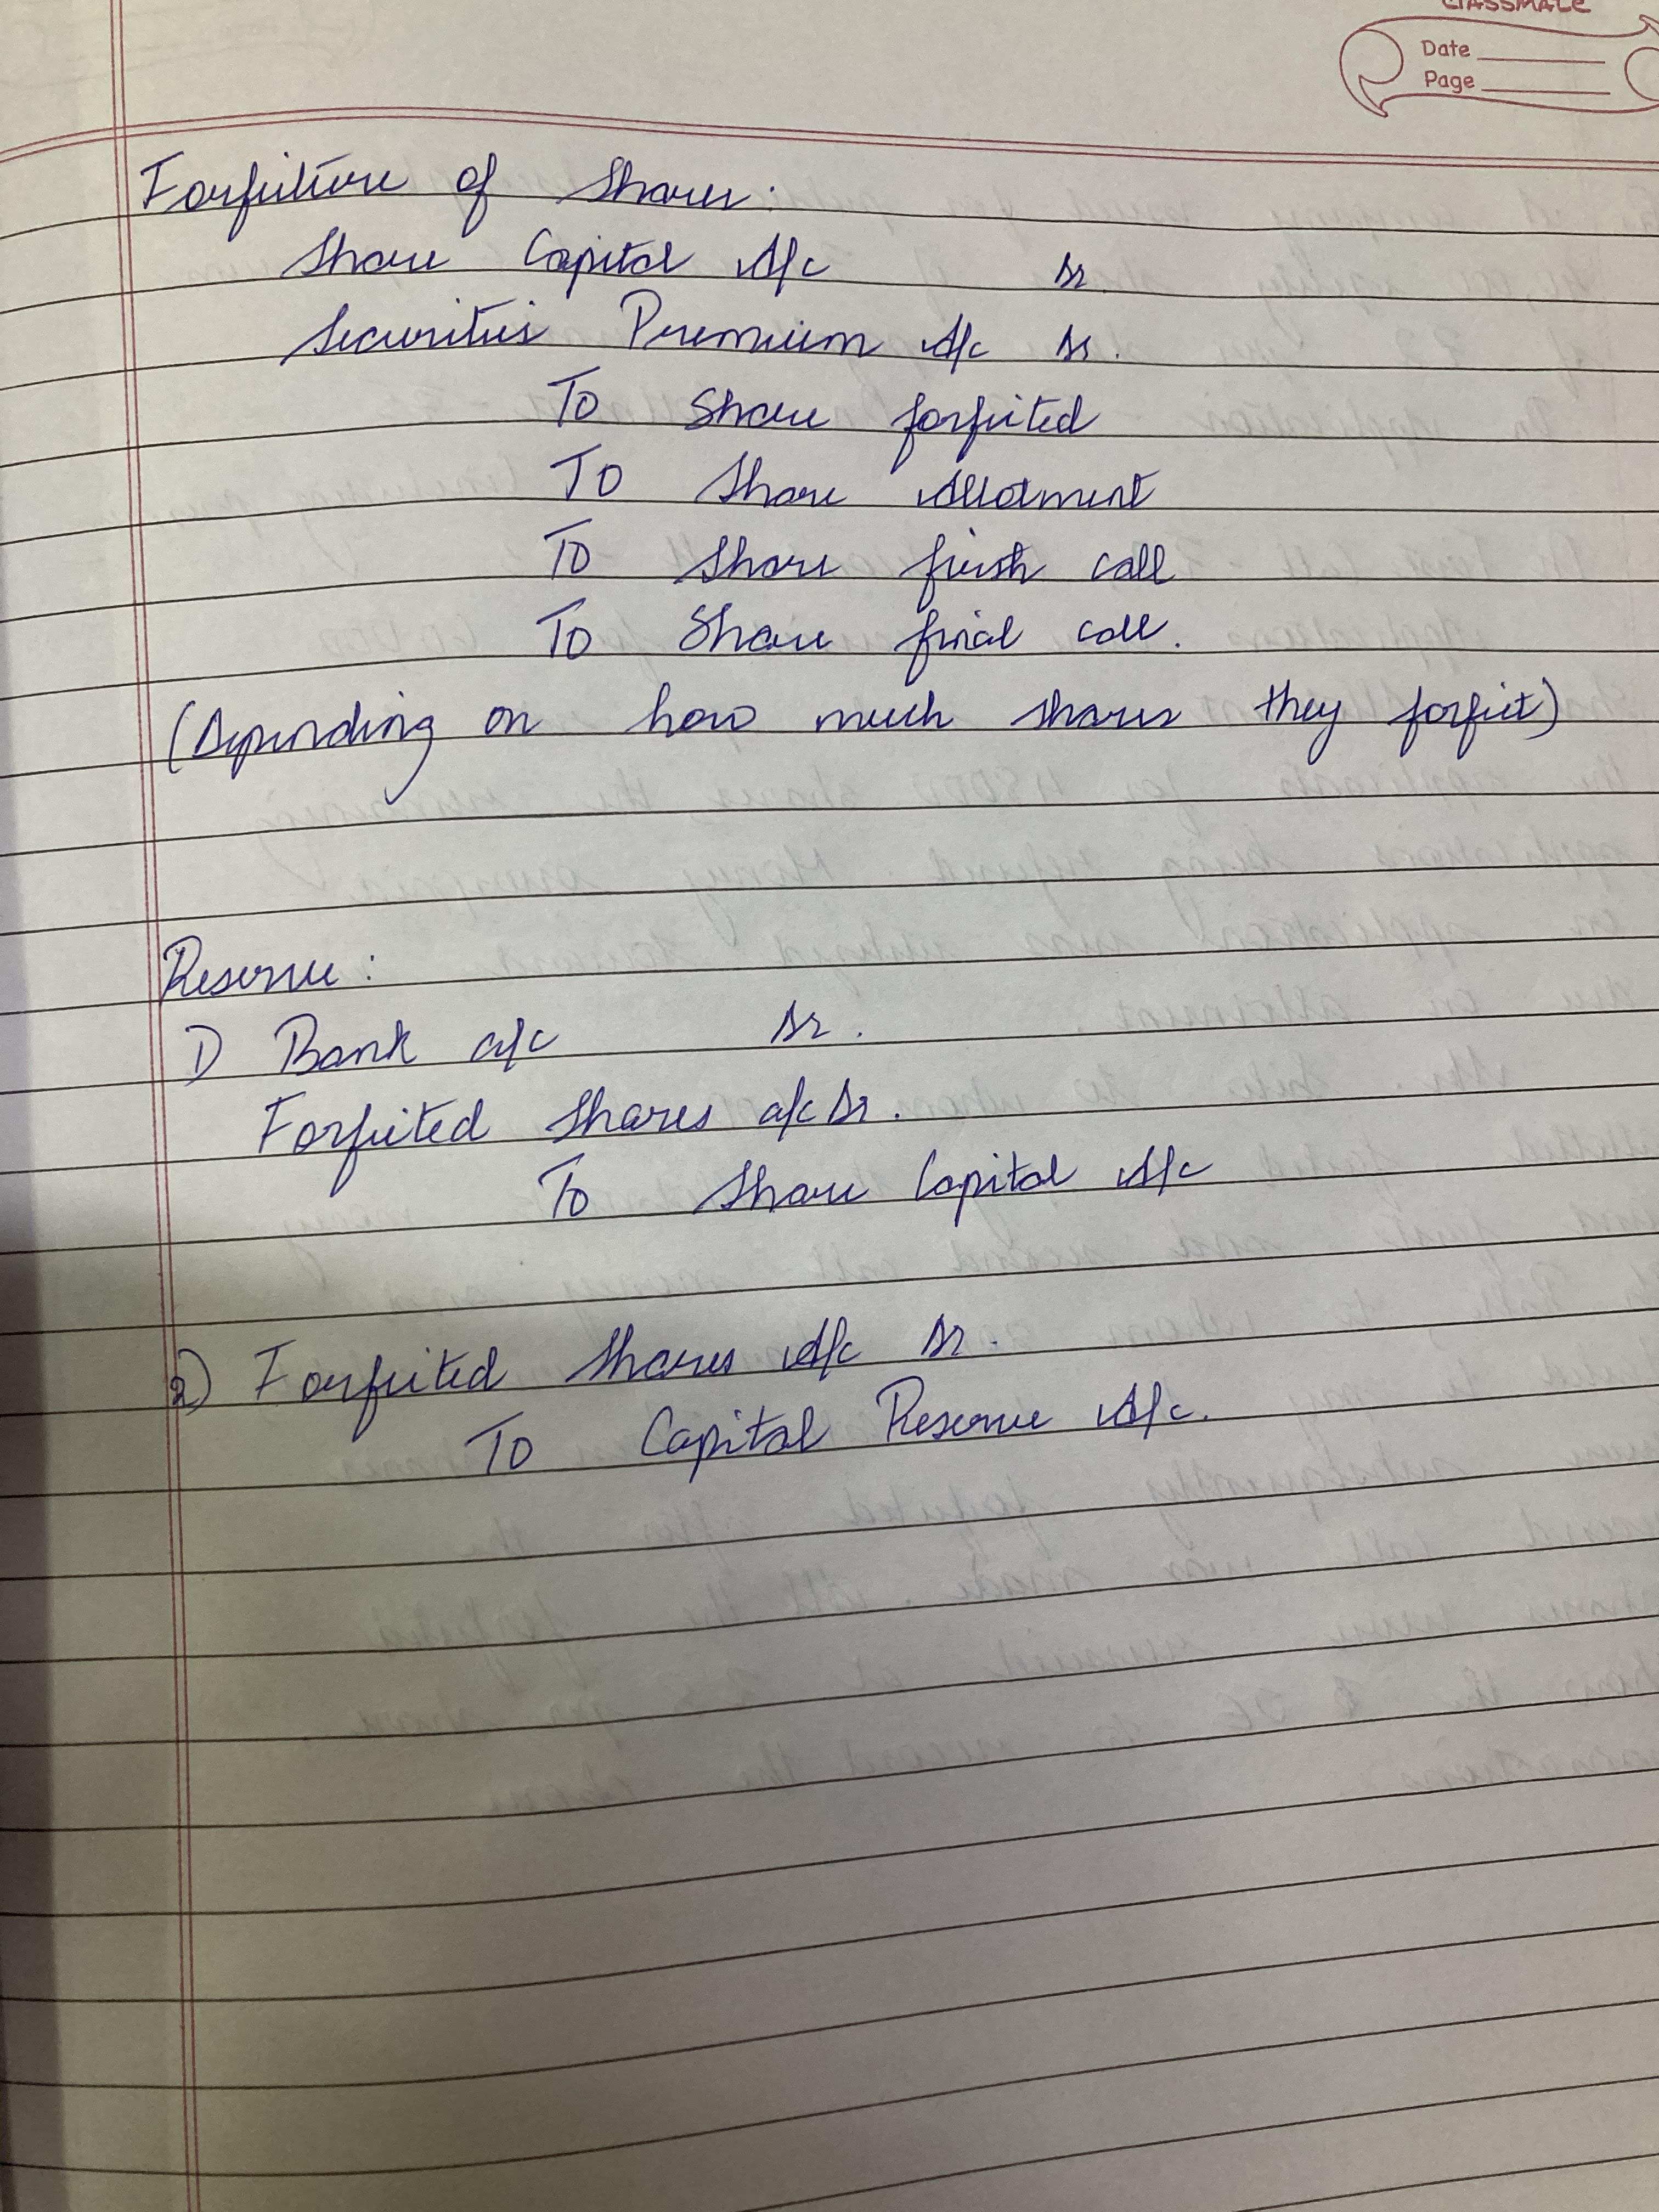 classmate
Date
Page
Forfeiture of Shares:
Share Capital A/c Dr.
Securities Premium A/c Dr.
To Share forfeited
To Share Allotment
To Share first call
To Share final call.
(Depending on how much shares they forfeit)
Reserve:
1) Bank a/c Dr.
Forfeited Shares a/c Dr.
To Share Capital A/c
2) Forfeited Shares A/c Dr.
To Capital Reserve A/c.